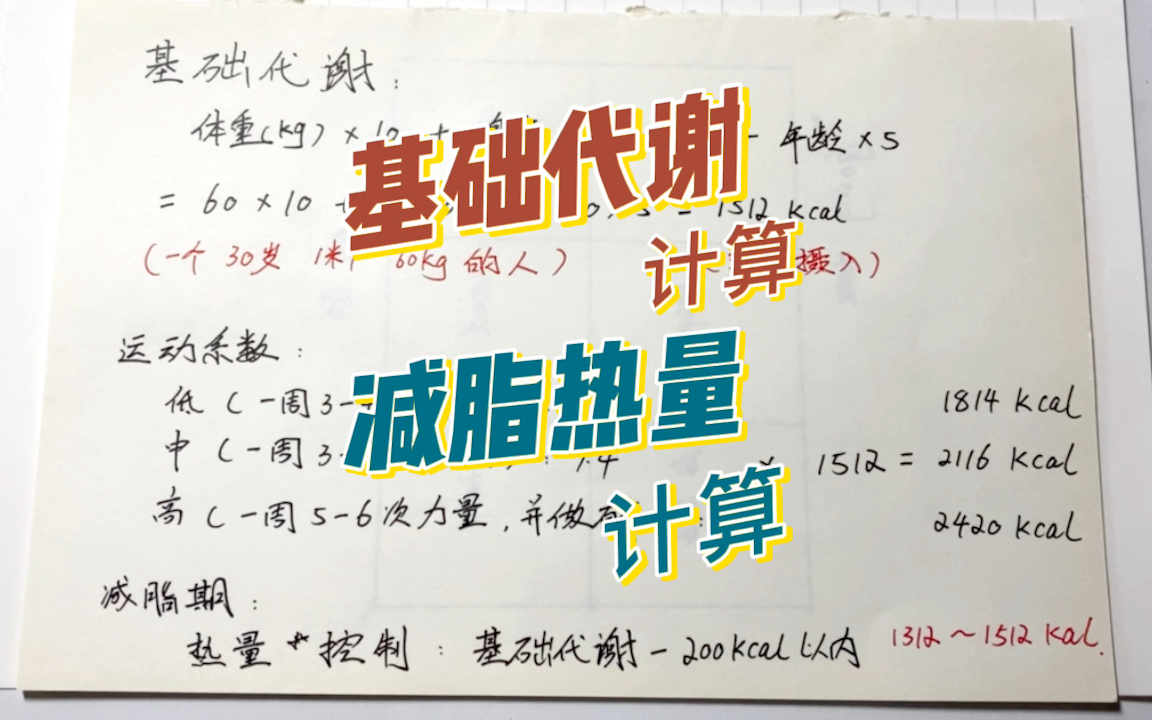 基础代谢:
体重(kg) × 10 + - 年龄 × 5
= 60 × 10 = 1512 kcal
(一个 30岁 1米 60kg 的人) 摄入)
基础代谢
计算
运动系数:
低 (一周3- 1814 kcal
中 (一周3- : 1.4 × 1512 = 2116 kcal
高 (一周5-6次力量,并做 : 2420 kcal
减脂热量
计算
减脂期:
热量 控制: 基础代谢 - 200kcal 以内 1312 ~ 1512 Kal.